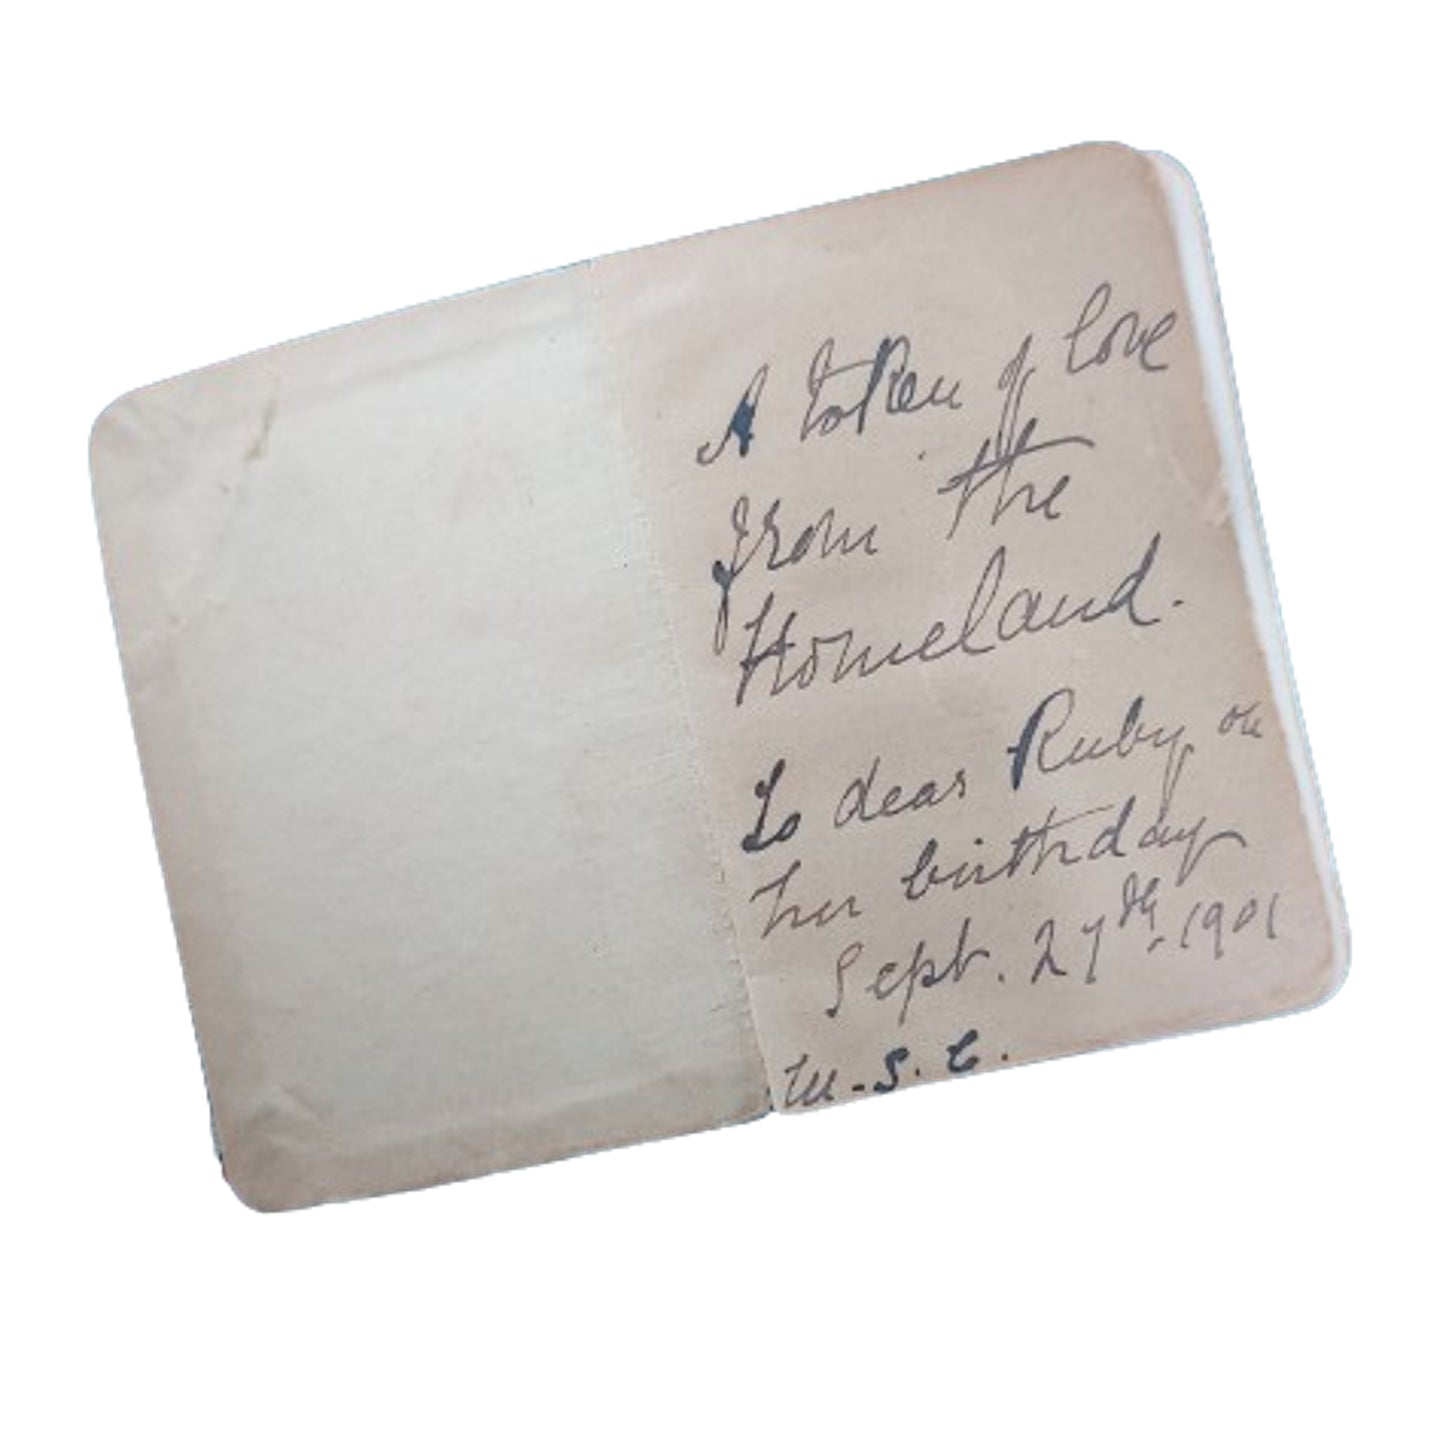 A token of love
from the
Homeland.
To dear Ruby on
her birthday
Sept. 27th-1901
M.S.C.